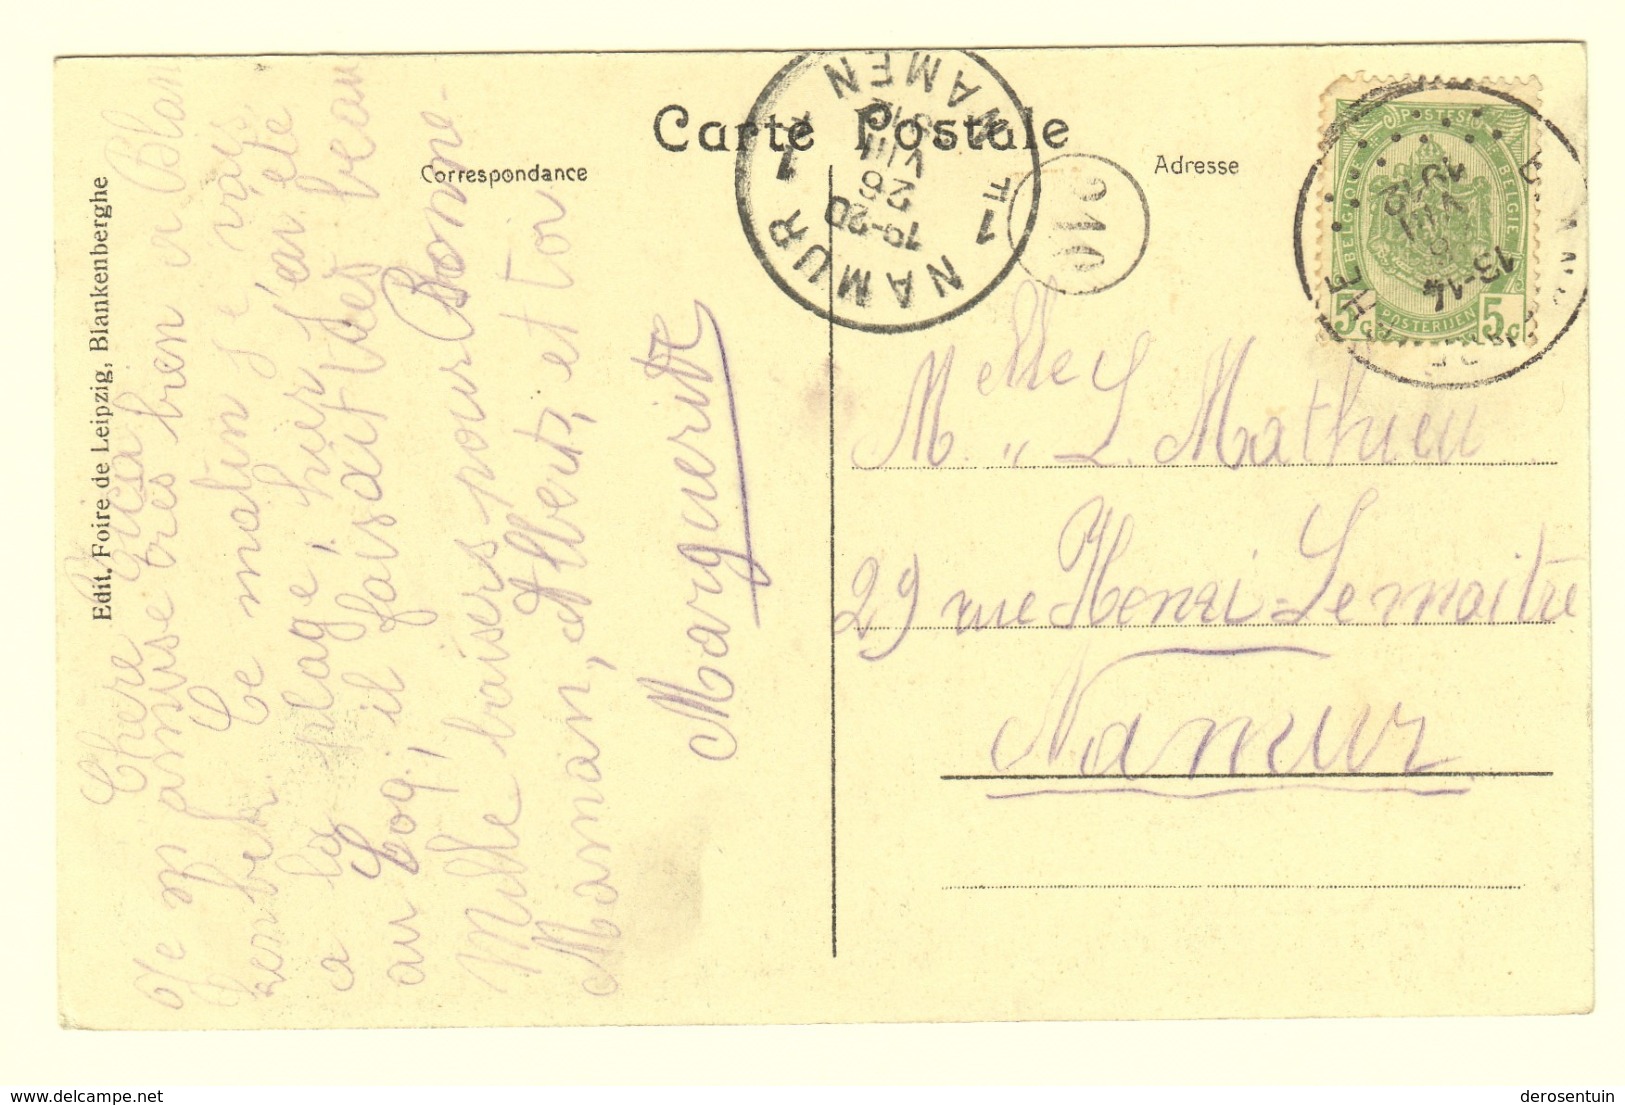 Carte Postale
Correspondance
Adresse
Edit. Foire de Leipzig, Blankenberghe
Chère
Je m'amuse très bien à Blan
kenberk. Ce matin je vais
à la plage, hier j'ai été
au Coq, il faisait très beau
Mille baisers pour Bonne-
Maman, Albert, et toi
Marguerite
Melle L. Mathieu
29 rue Henri-Lemaitre
Namur
NAMUR 1 NAMEN 1
19-20
26
VIII
12
210
13-14
VIII
POSTES
BELGIQUE
BELGIE
5c POSTERIJEN 5c
delcampe.net
derosentuin